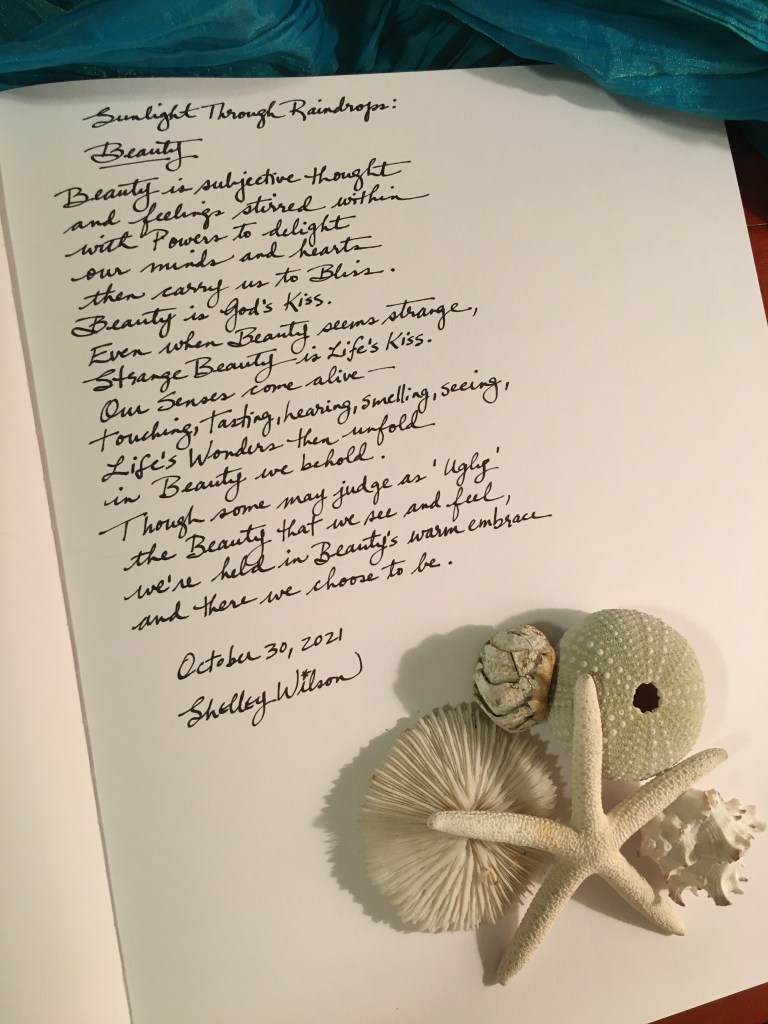 Sunlight Through Raindrops:
Beauty
Beauty is subjective thought
and feelings stirred within
with Powers to delight
our minds and hearts
then carry us to Bliss.
Beauty is God's Kiss.
Even when Beauty seems strange,
Strange Beauty is Life's Kiss.
Our Senses come alive—
Touching, Tasting, hearing, smelling, seeing,
Life's Wonders then unfold
in Beauty we behold.
Though some may judge as 'Ugly'
the Beauty that we see and feel,
we're held in Beauty's warm embrace
and there we choose to be.
October 30, 2021
Shelley Wilson